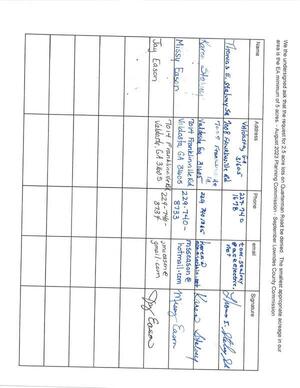 We the undersigned ask that the request for 2.5 acre lots on Quarterman Road be denied. The smallest appropriate acreage in our
area is the EA minimum of 5 acres. - August 2023 Planning Commission - September Lowndes County Commission
Name
Address
Phone
email
Signature
Thomas E. Stalvey Sr
Valdosta, GA
31605
229 740
1678
tom.stalvey
Thomas E. Stalvey Sr
Karen Stalvey
Valdosta Ga 31605
Karen Stalvey
Missy Eason
7014 Franklinville Rd
Valdosta GA 31605
229-740-
8733
msseason@
hotmail.com
Missy Eason
Jay Eason
7014 Franklinville Rd
Valdosta, GA 31605
229-740-
8734
gmail.com
Jay Eason